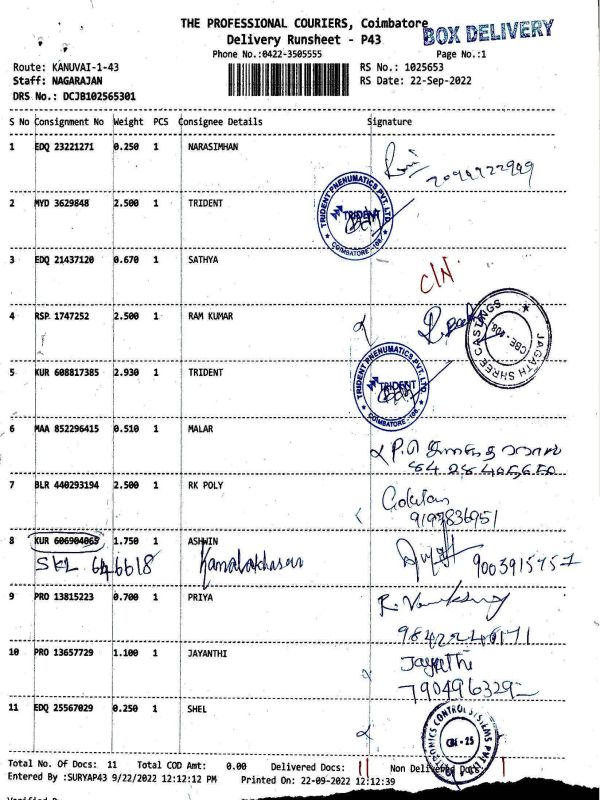 THE PROFESSIONAL COURIERS, Coimbatore
BOX DELIVERY
Delivery Runsheet - P43
Phone No.:0422-3505555
Page No.:1
Route: KANUVAI-1-43
RS No.: 1025653
Staff: NAGARAJAN
RS Date: 22-Sep-2022
DRS No.: DCJB102565301
S No Consignment No Weight PCS Consignee Details Signature
1 EDQ 23221271 0.250 1 NARASIMHAN
2 MYD 3629848 2.500 1 TRIDENT
TRIDENT PNEUMATICS PVT. LTD. TRIDENT COIMBATORE
3 EDQ 21437120 0.670 1 SATHYA
C/N
4 RSP 1747252 2.500 1 RAM KUMAR
JAGATH SHREE CASTINGS CBE
5 KUR 608817385 2.930 1 TRIDENT
TRIDENT PNEUMATICS PVT. LTD. TRIDENT COIMBATORE
6 MAA 852296415 0.510 1 MALAR
7 BLR 440293194 2.500 1 RK POLY
8 KUR 606904065 1.750 1 ASHWIN
SKL 646618
9 PRO 13815223 0.700 1 PRIYA
10 PRO 13657729 1.100 1 JAYANTHI
Jayathi
11 EDQ 25567029 0.250 1 SHEL
CONTROL SYSTEMS PVT CBE - 25
Total No. Of Docs: 11 Total COD Amt: 0.00 Delivered Docs: 11 Non Delivered Docs: 1
Entered By :SURYAP43 9/22/2022 12:12:12 PM Printed On: 22-09-2022 12:12:39